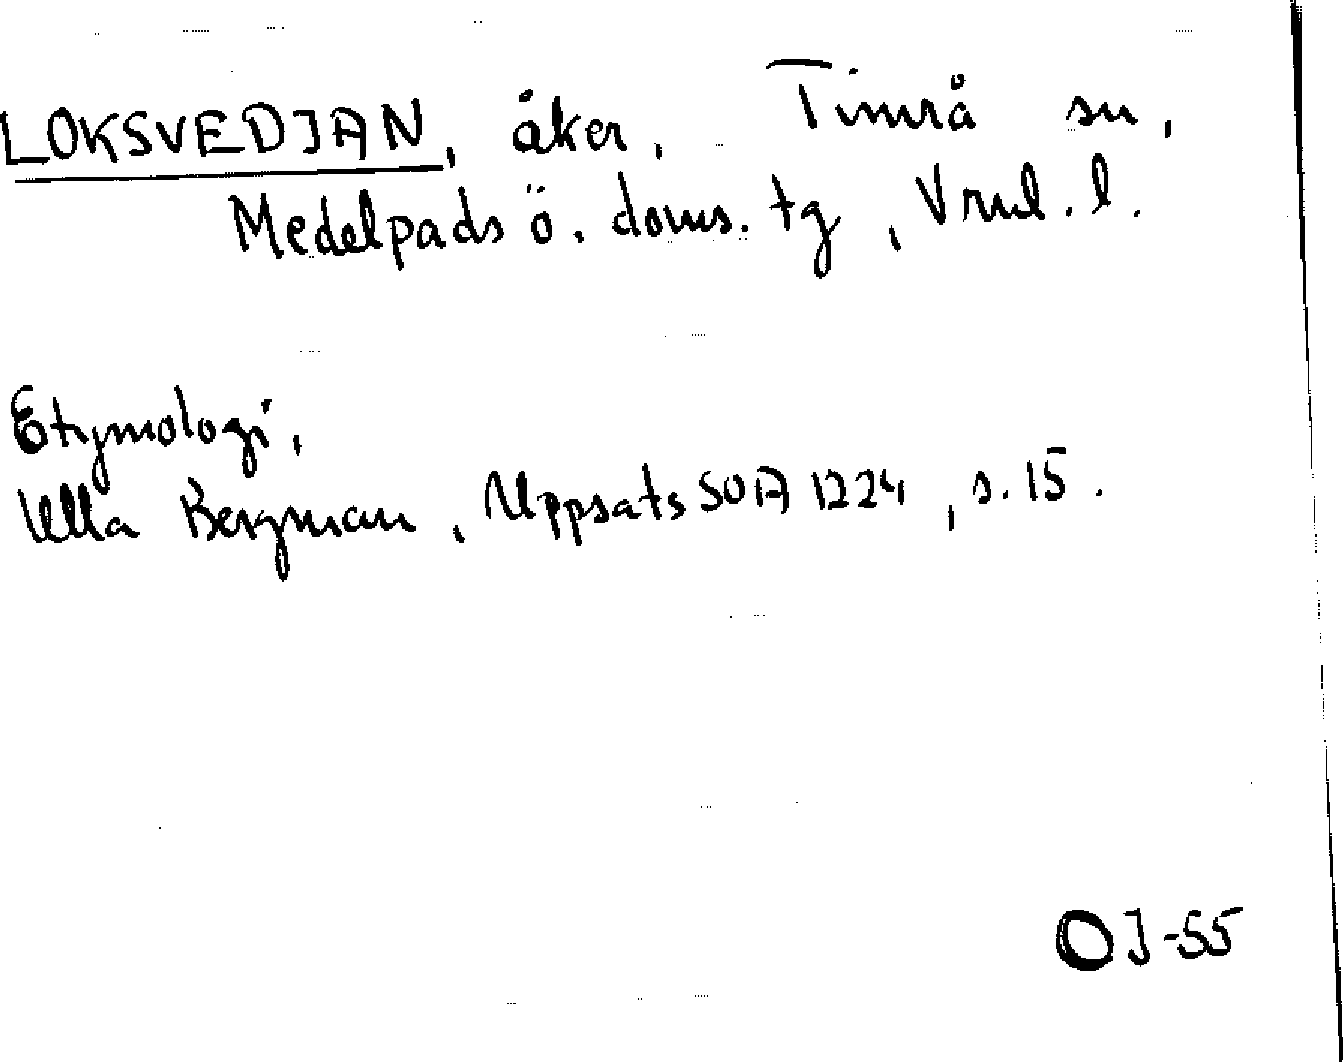 LOKSVEDJAN, åker, Timrå sn,
Medelpads ö. doms. tg, Vrnl. l.
Etymologi,
Ulla Bergman, Uppsats SOA 1224, s. 15.
OJ-55